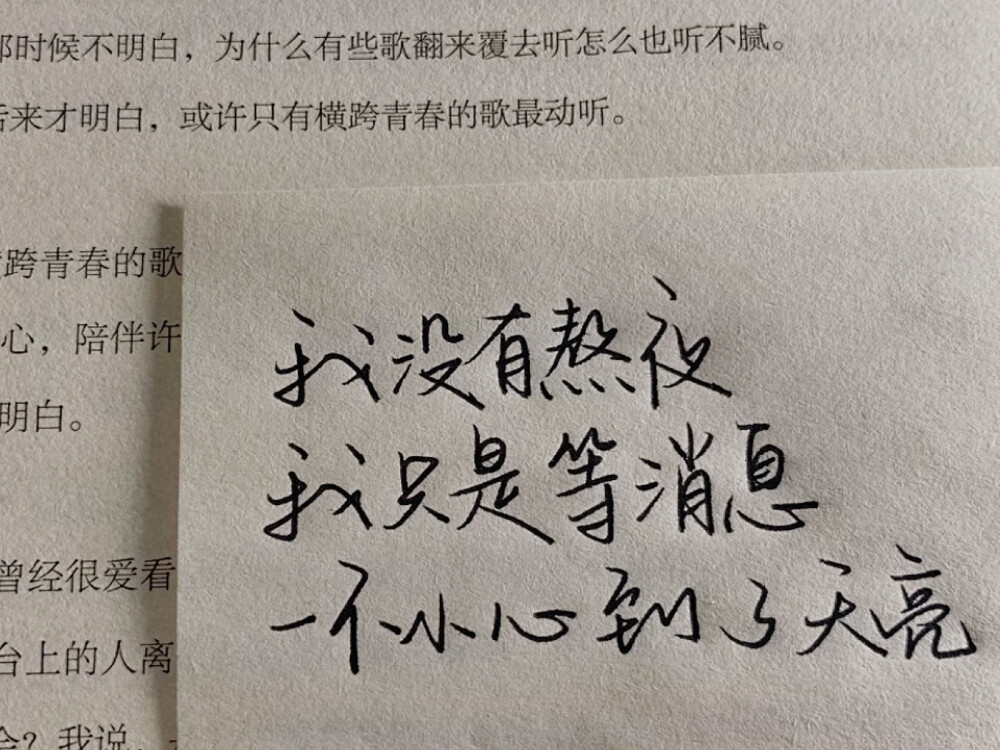 时候不明白，为什么有些歌翻来覆去听怎么也听不腻。
来才明白，或许只有横跨青春的歌最动听。
跨青春的歌
心，陪伴许
明白。
曾经很爱看
台上的人离
我没有熬夜
我只是等消息
一不小心到了天亮
？我说，